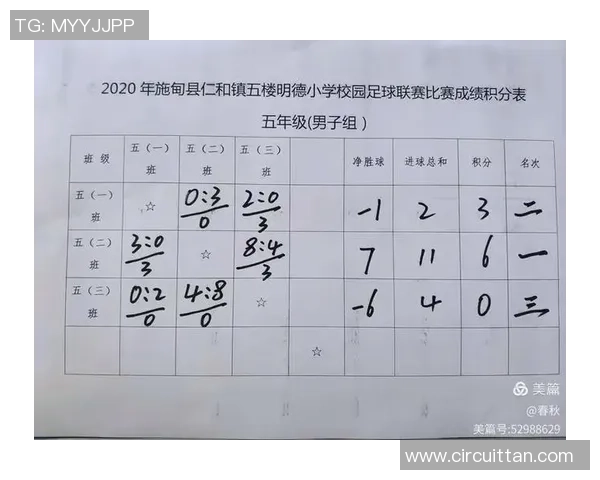 TG: MYYJJPP
2020 年施甸县仁和镇五楼明德小学校园足球联赛比赛成绩积分表
五年级(男子组 )
班 级 五（一）班 五（二）班 五（三）班 净胜球 进球总和 积分 名次
五（一）班 ☆ 0:3/0 2:0/3 -1 2 3 二
五（二）班 3:0/3 ☆ 8:4/3 7 11 6 一
五（三）班 0:2/0 4:8/0 ☆ -6 4 0 三
☆
美篇
@春秋
美篇号:52988629
www.circuittan.com